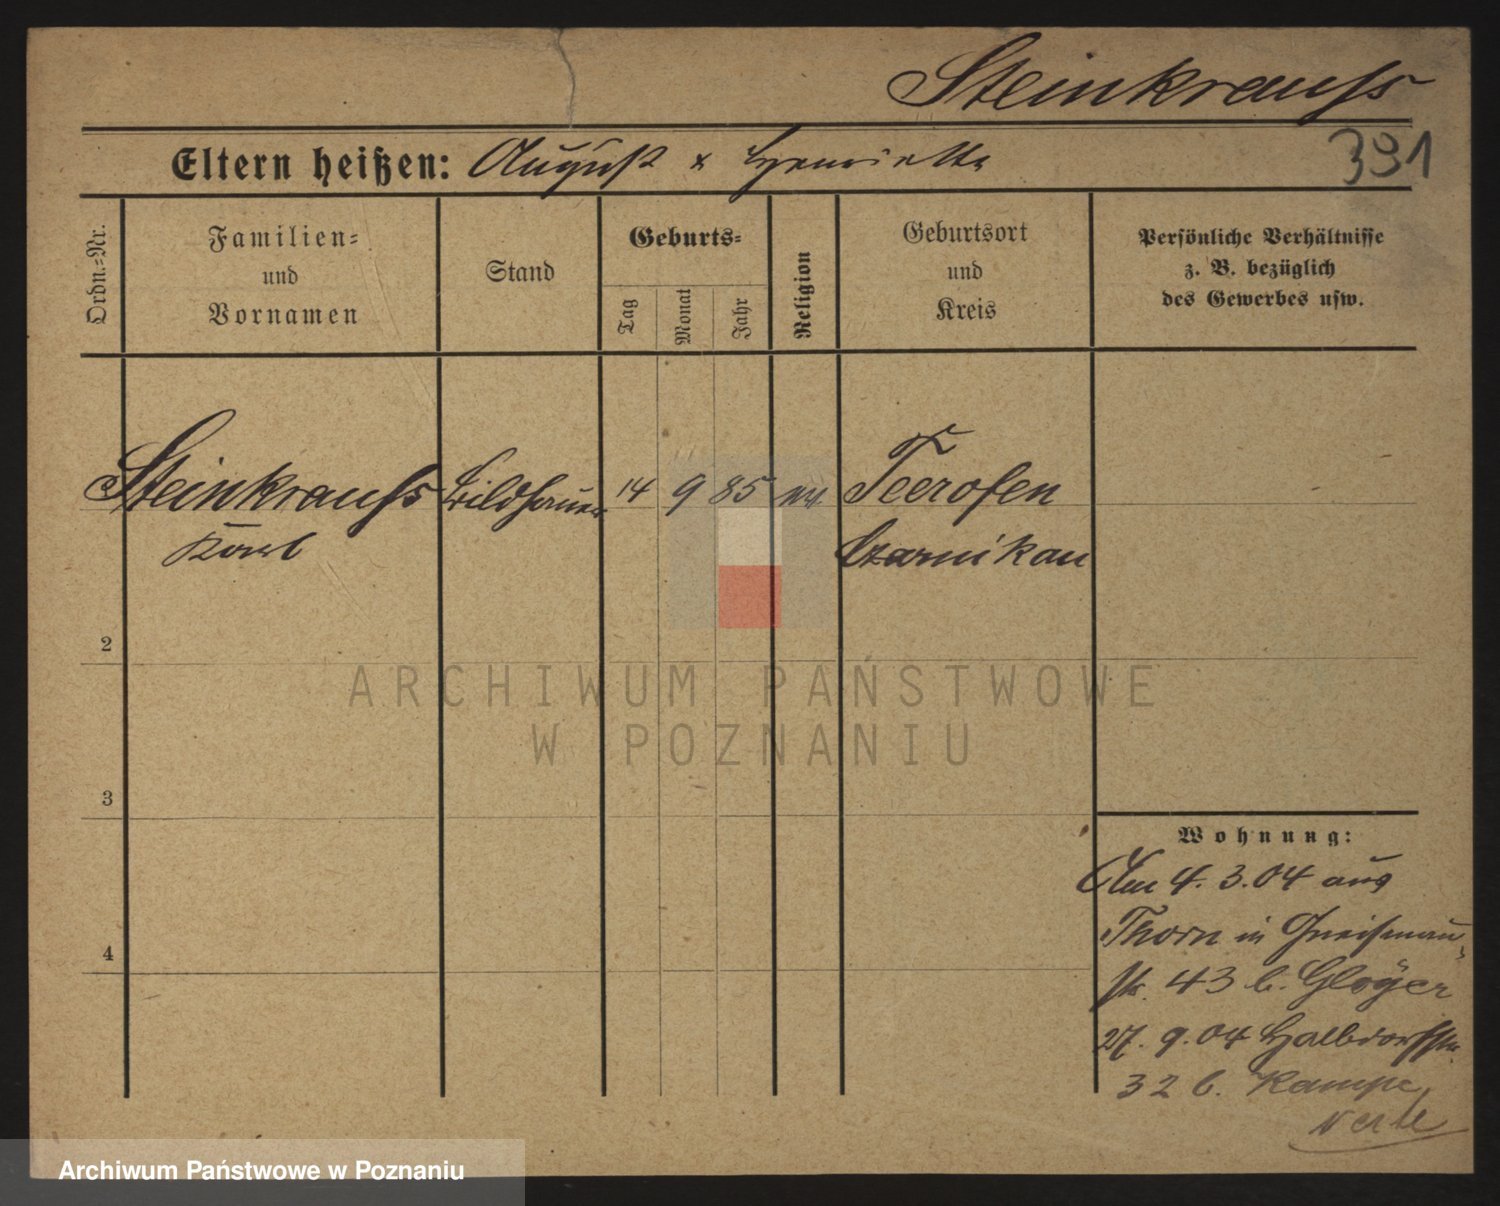 Steinkrauss
391
Eltern heißen: August & Henriette
Ordn.-Nr.
Familien-
und
Vornamen
Stand
Geburts-
Tag
Monat
Jahr
Religion
Geburtsort
und
Kreis
Persönliche Verhältnisse
z. B. bezüglich
des Gewerbes usw.
Steinkrauss Bildhauer 14 9 85 Teerofen
Karl Czarnikau
2
3
4
Wohnung:
Am 4. 3. 04 aus
Thorn in Gneisenau-
str. 43 b. Glöyer
27. 9. 04 Halbdorfstr.
32 b. Kampe
verte
ARCHIWUM PAŃSTWOWE
W POZNANIU
Archiwum Państwowe w Poznaniu